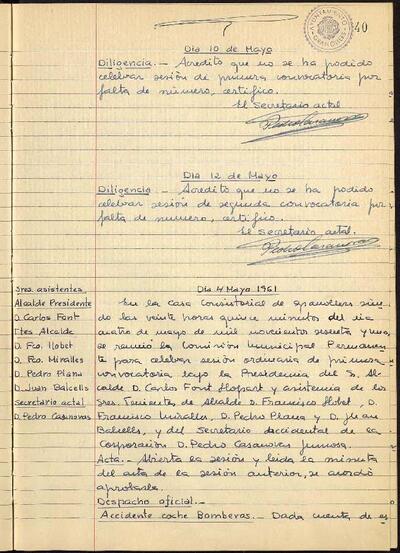 40
AYUNTAMIENTO GRANOLLERS
Dia 10 de Mayo
Diligencia.- Acredito que no se ha podido
celebrar sesión de primera convocatoria por
falta de número, certifico.
El secretario actal
Pedro Casanovas
DIA 12 de Mayo
Diligencia - Acredito que no se ha podido
celebrar sesión de segunda convocatoria por
falta de numero, certifico.
El secretario actal.
Pedro Casanovas
Sres. asistentes
Alcalde Presidente
D. Carlos Font
Ttes Alcalde
D. Fco. Llobet
D. Fco. Miralles
D. Pedro Plana
D. Juan Balcells
Secretario actal
D. Pedro Casanovas
Dia 4 Mayo 1961
En la Casa Consistorial de Granollers sien-
do las veinte horas quince minutos del dia
cuatro de mayo de mil novecientos sesenta y uno,
se reunió la Comisión Municipal Permanen-
te para celebrar sesión ordinaria de primera
convocatoria bajo la Presidencia del S. Al-
calde D. Carlos Font Llopart y asistencia de los
sres. Tenientes de Alcalde D. Francisco Llobet, D.
Francisco Miralles, D. Pedro Plana y D. Juan
Balcells, y del Secretario accidental de la
Corporación D. Pedro Casanovas
Acta.- Abierta la sesión y leida la minuta
del acta de la sesión anterior, se acordó
aprobarla.
Despacho oficial.-
Accidente coche Bomberos.- Dada cuenta de es